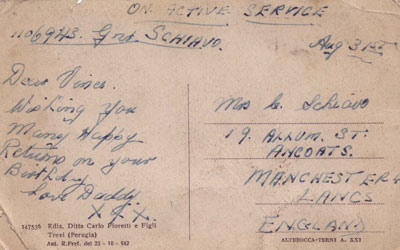 ON ACTIVE SERVICE
Gnr SCHIAVO.
Aug 31st
Dear Vince.
Wishing you
Many Happy
Returns on your
Birthday
Love Daddy.
X X X.
Mrs C. Schiavo
19. ALLUM. ST:
ANCOATS.
MANCHESTER 4
LANCS
ENGLAND
147536 Ediz. Ditta Carlo Fioretti e Figli
Trevi (Perugia)
Aut. R. Pref. del 23 - 10 - 942
ALTEROCCA-TERNI A. XXI